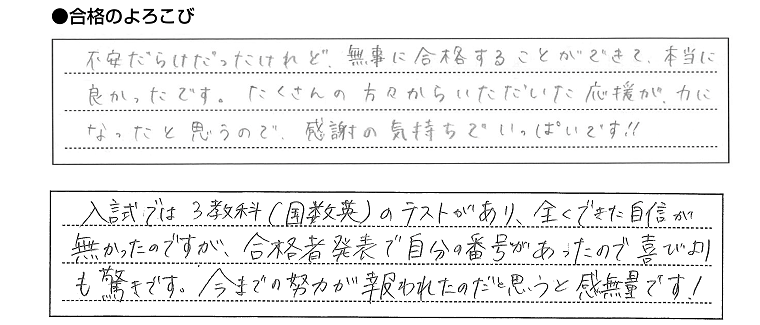 ●合格のよろこび
不安だらけだったけれど、無事に合格することができて、本当に
良かったです。たくさんの方々からいただいた応援が、力に
なったと思うので、感謝の気持ちでいっぱいです!!
入試では3教科(国数英)のテストがあり、全くできた自信が
無かったのですが、合格者発表で自分の番号があったので喜びより
も驚きです。今までの努力が報われたのだと思うと感無量です!